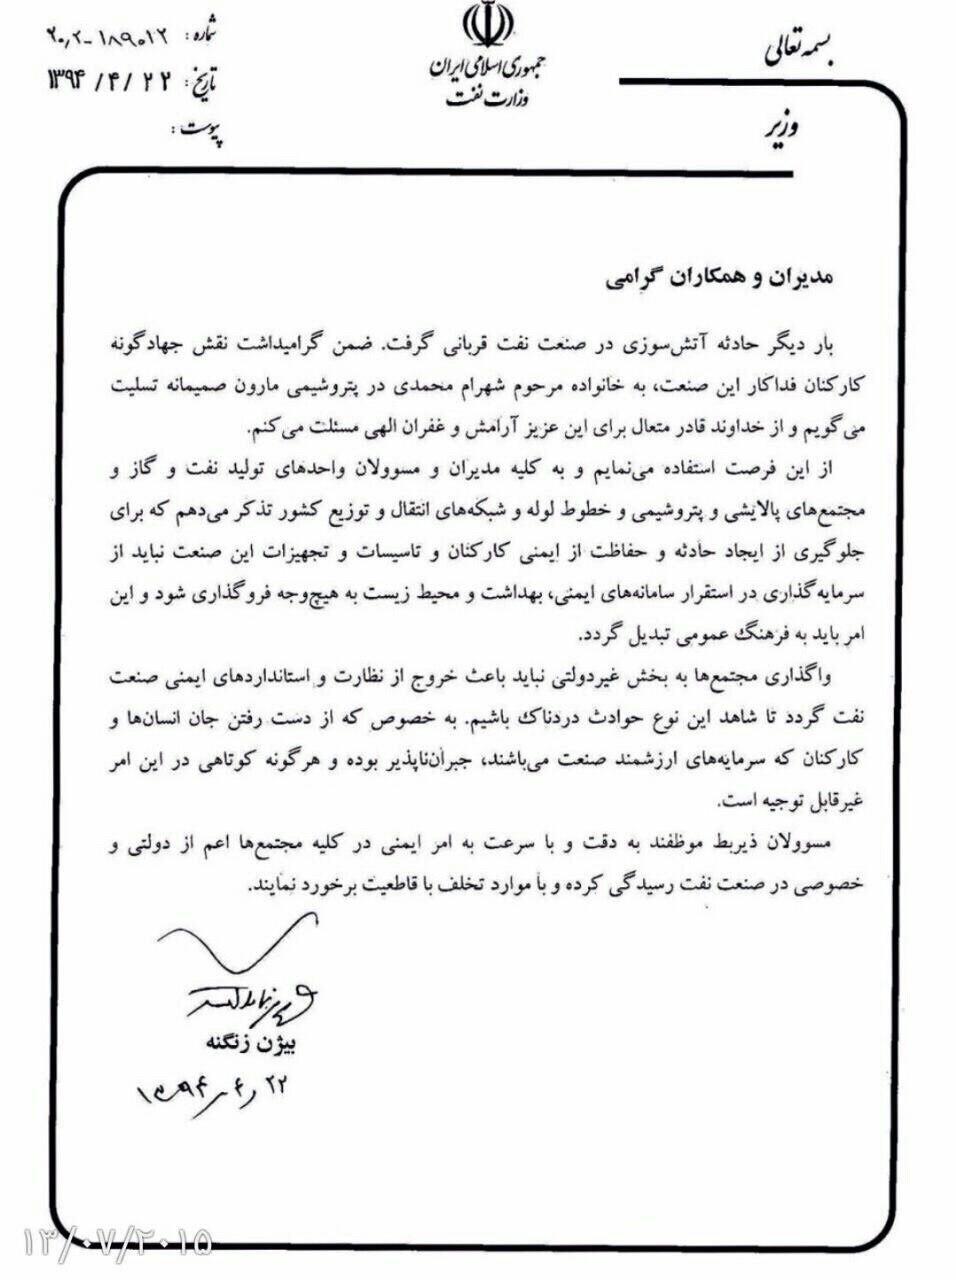 بسمه تعالی
جمهوری اسلامی ایران
وزارت نفت
وزیر
شماره: ۲۰٫۲-۱۸۹۰۱۲
تاریخ: ۱۳۹۴/۴/۲۲
پیوست:
مدیران و همکاران گرامی
بار دیگر حادثه آتش‌سوزی در صنعت نفت قربانی گرفت. ضمن گرامیداشت نقش جهادگونه
کارکنان فداکار این صنعت، به خانواده مرحوم شهرام محمدی در پتروشیمی مارون صمیمانه تسلیت
می‌گویم و از خداوند قادر متعال برای این عزیز آرامش و غفران الهی مسئلت می‌کنم.
از این فرصت استفاده می‌نمایم و به کلیه مدیران و مسوولان واحدهای تولید نفت و گاز و
مجتمع‌های پالایشی و پتروشیمی و خطوط لوله و شبکه‌های انتقال و توزیع کشور تذکر می‌دهم که برای
جلوگیری از ایجاد حادثه و حفاظت از ایمنی کارکنان و تاسیسات و تجهیزات این صنعت نباید از
سرمایه‌گذاری در استقرار سامانه‌های ایمنی، بهداشت و محیط زیست به هیچ‌وجه فروگذاری شود و این
امر باید به فرهنگ عمومی تبدیل گردد.
واگذاری مجتمع‌ها به بخش غیردولتی نباید باعث خروج از نظارت و استانداردهای ایمنی صنعت
نفت گردد تا شاهد این نوع حوادث دردناک باشیم. به خصوص که از دست رفتن جان انسان‌ها و
کارکنان که سرمایه‌های ارزشمند صنعت می‌باشند، جبران‌ناپذیر بوده و هرگونه کوتاهی در این امر
غیرقابل توجیه است.
مسوولان ذیربط موظفند به دقت و با سرعت به امر ایمنی در کلیه مجتمع‌ها اعم از دولتی و
خصوصی در صنعت نفت رسیدگی کرده و با موارد تخلف با قاطعیت برخورد نمایند.
بیژن زنگنه
۱۳۹۴٫۴٫۲۲
۱۳/۰۷/۲۰۱۵